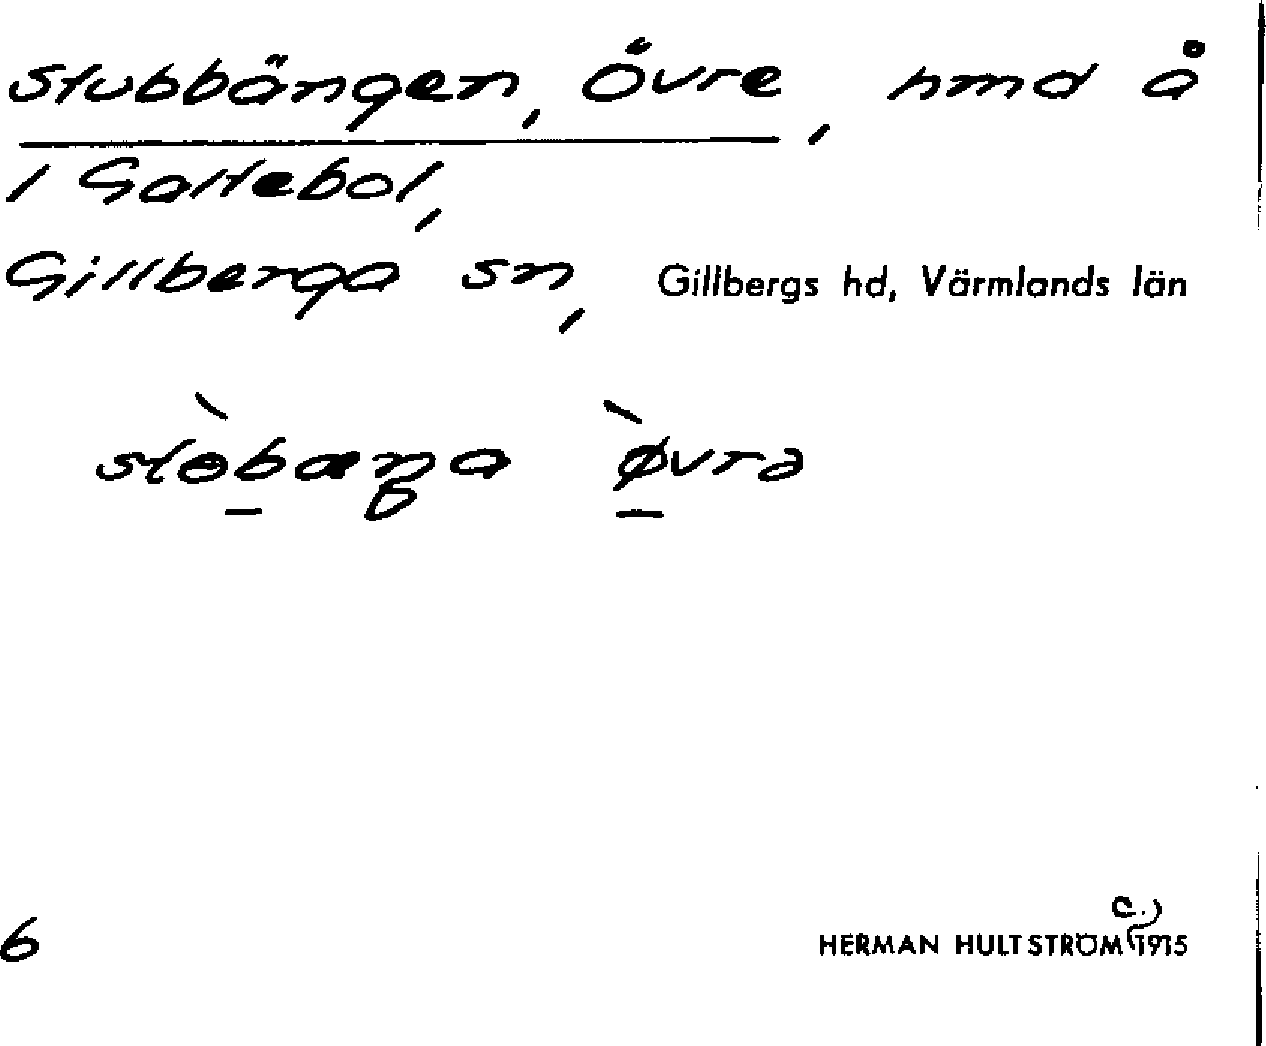 Stubbängen, Övre, hmd å
1 Galtebol,
Gillberga sn, Gillbergs hd, Värmlands län
stɵ̀bæŋa ø̀vrə
6
HERMAN HULTSTRÖM (c.) 1915